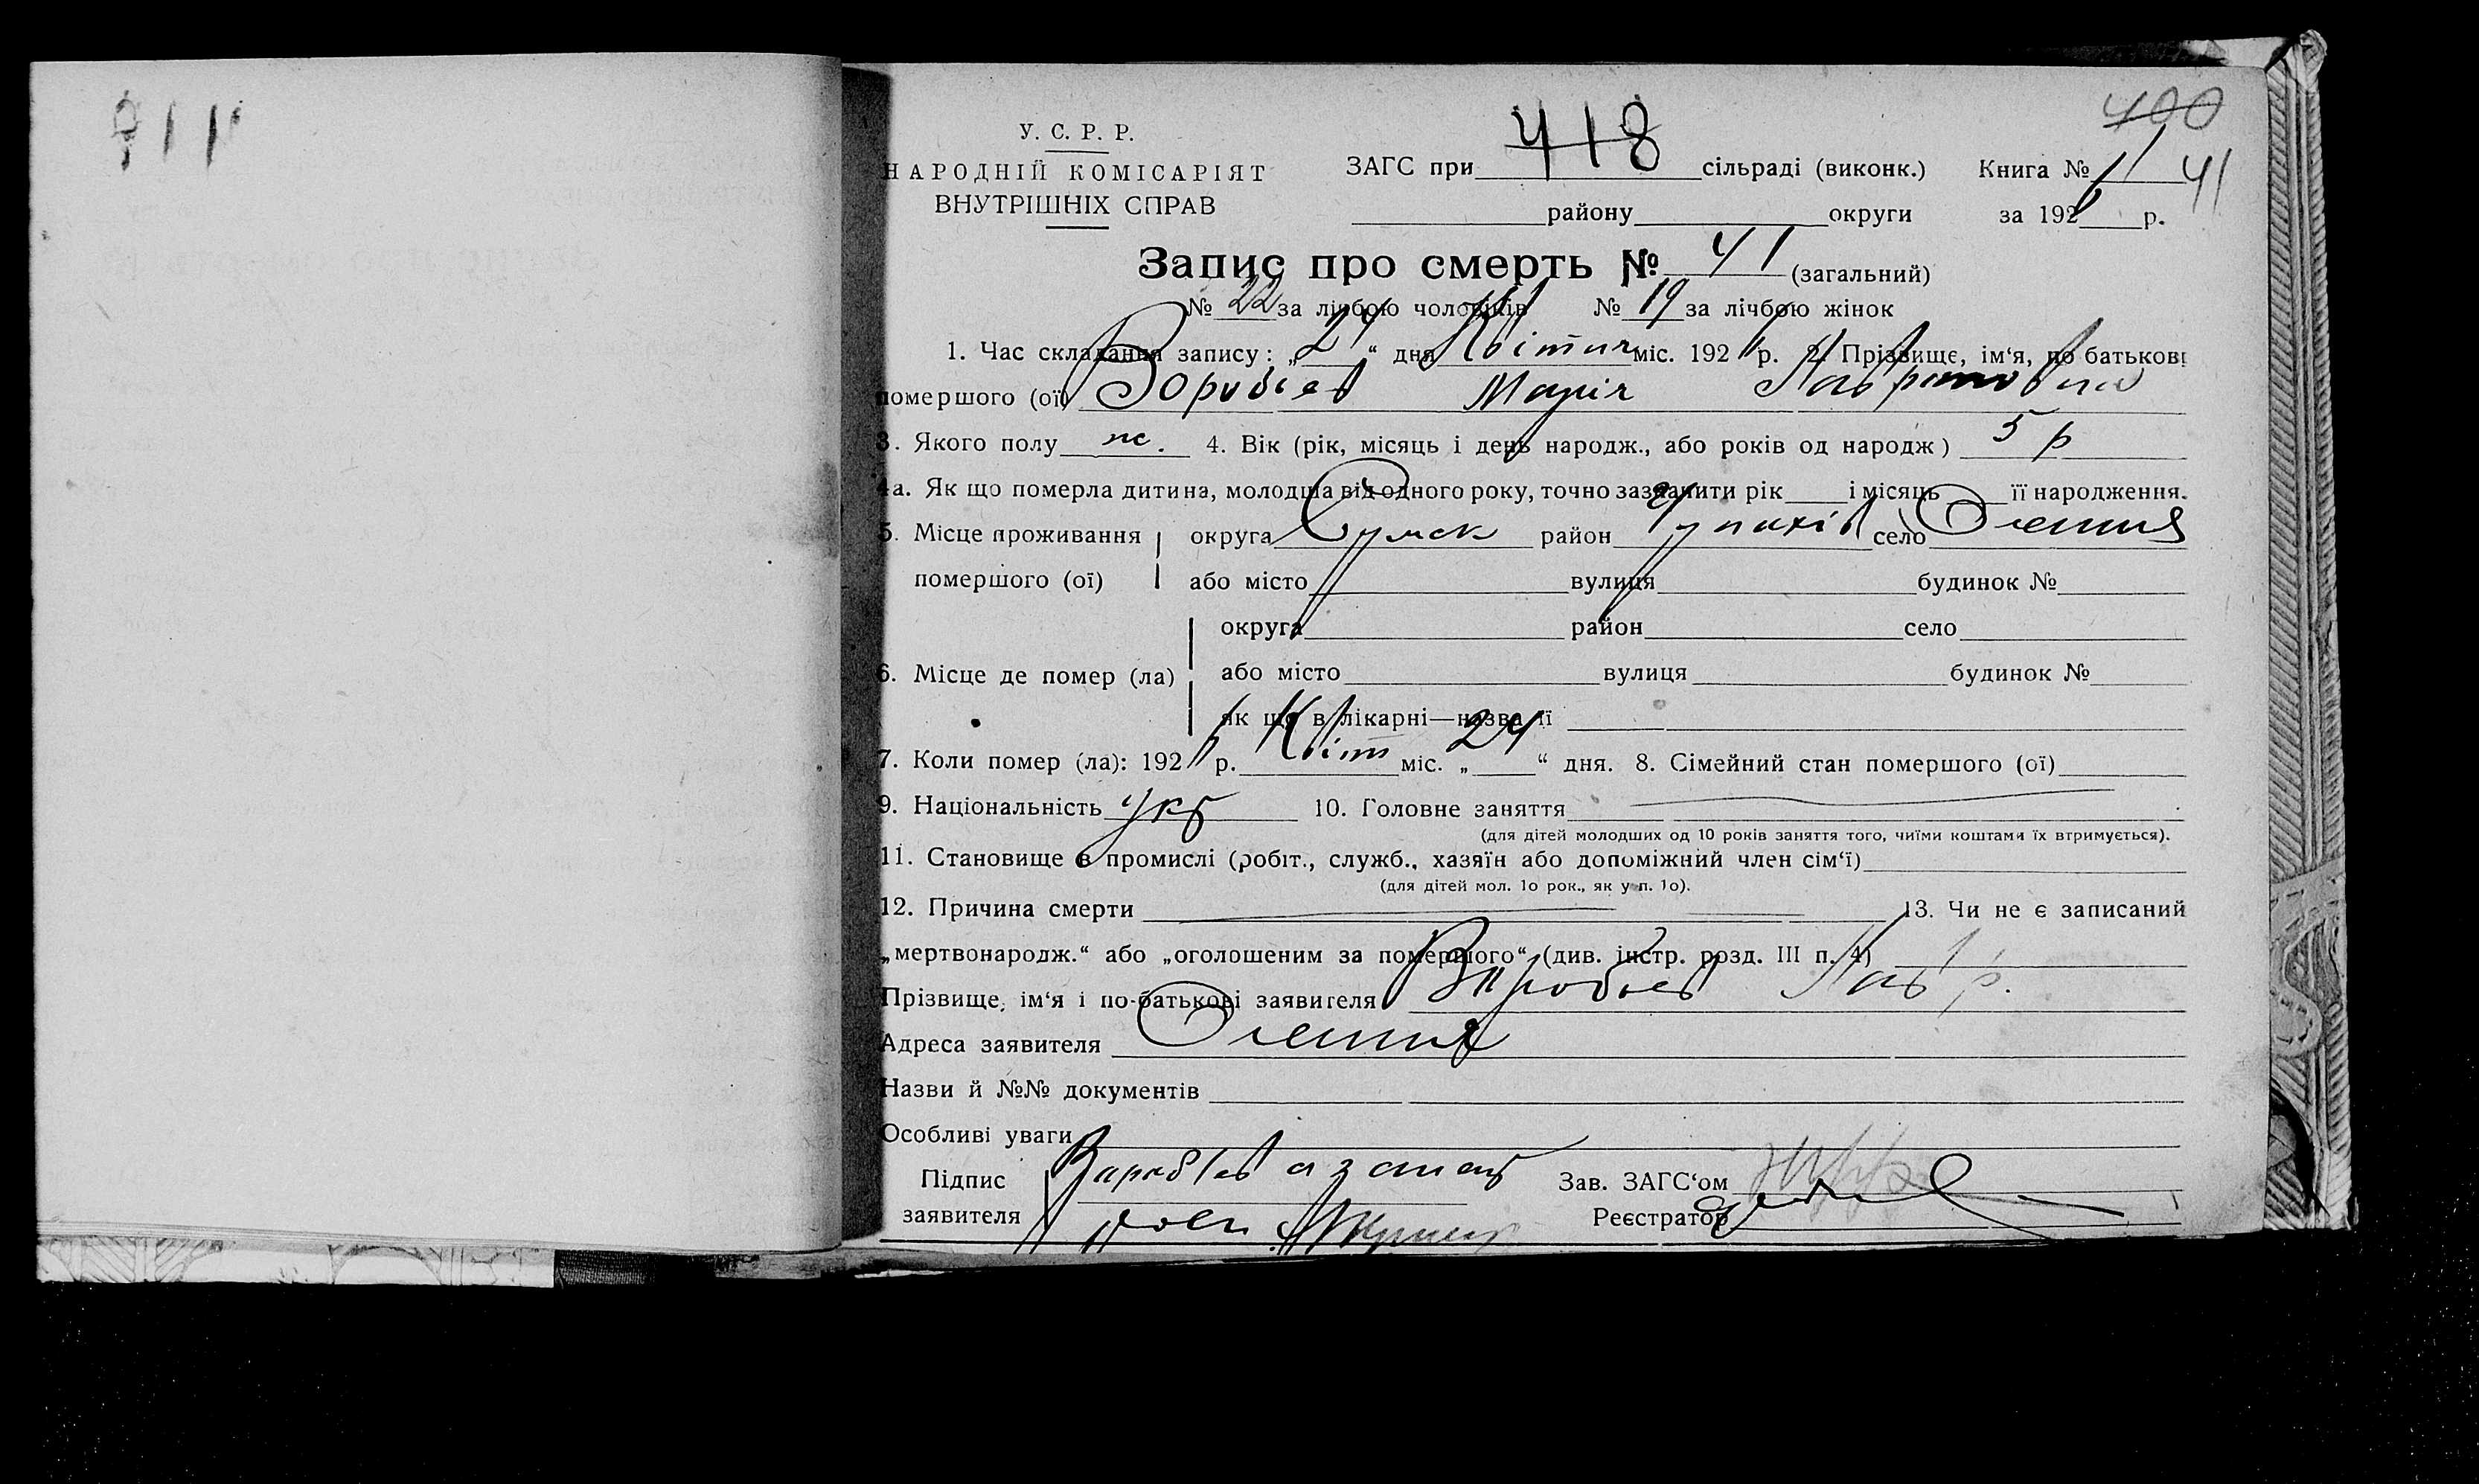 У. С. Р. Р.
НАРОДНІЙ КОМІСАРІЯТ
ВНУТРІШНІХ СПРАВ
400
ЗАГС при 418 сільраді (виконк.) Книга № 41
району округи за 1926 р.
Запис про смерть № 41 (загальний)
№ 22 за лічбою чоловіків № 19 за лічбою жінок
1. Час складання запису: „24“ дня Квітня міс. 1926 р. 2. Прізвище, ім‘я, по батькові
помершого (ої) Воробьев Марія
3. Якого полу ж. 4. Вік (рік, місяць і день народж., або років од народж) 5 р
4а. Як що померла дитина, молодша від одного року, точно зазначити рік і місяць її народження.
5. Місце проживання округа Сумск район село
помершого (ої) або місто вулиця будинок №
округа район село
6. Місце де помер (ла) або місто вулиця будинок №
як що в лікарні—назва її
7. Коли помер (ла): 1926 р. Квіт міс. „24“ дня. 8. Сімейний стан помершого (ої)
9. Національність Укр 10. Головне заняття
(для дітей молодших од 10 років заняття того, чиїми коштами їх втримується).
11. Становище в промислі (робіт., служб., хазяїн або допоміжний член сім‘ї)
(для дітей мол. 1о рок., як у п. 1о).
12. Причина смерти 13. Чи не є записаний
„мертвонародж.“ або „оголошеним за помершого“ (див. інстр. розд. III п. 4)
Прізвище, ім‘я і по-батькові заявителя Воробьев Лавр.
Адреса заявителя
Назви й №№ документів
Особливі уваги
Підпис
заявителя
Зав. ЗАГС‘ом
Реєстратор